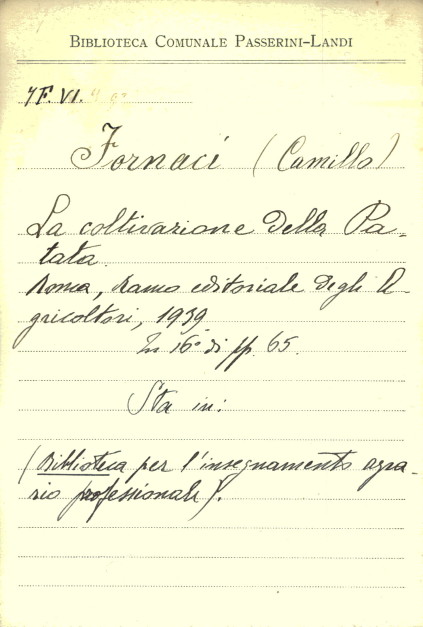 BIBLIOTECA COMUNALE PASSERINI-LANDI
4F. VI.
Fornaci (Camillo)
La coltivazione della Pa-
tata.
Roma, Ramo editoriale degli A-
gricoltori, 1939.
In 16° di pp. 65.
Sta in:
(Biblioteca per l'insegnamento agra-
rio professionale).